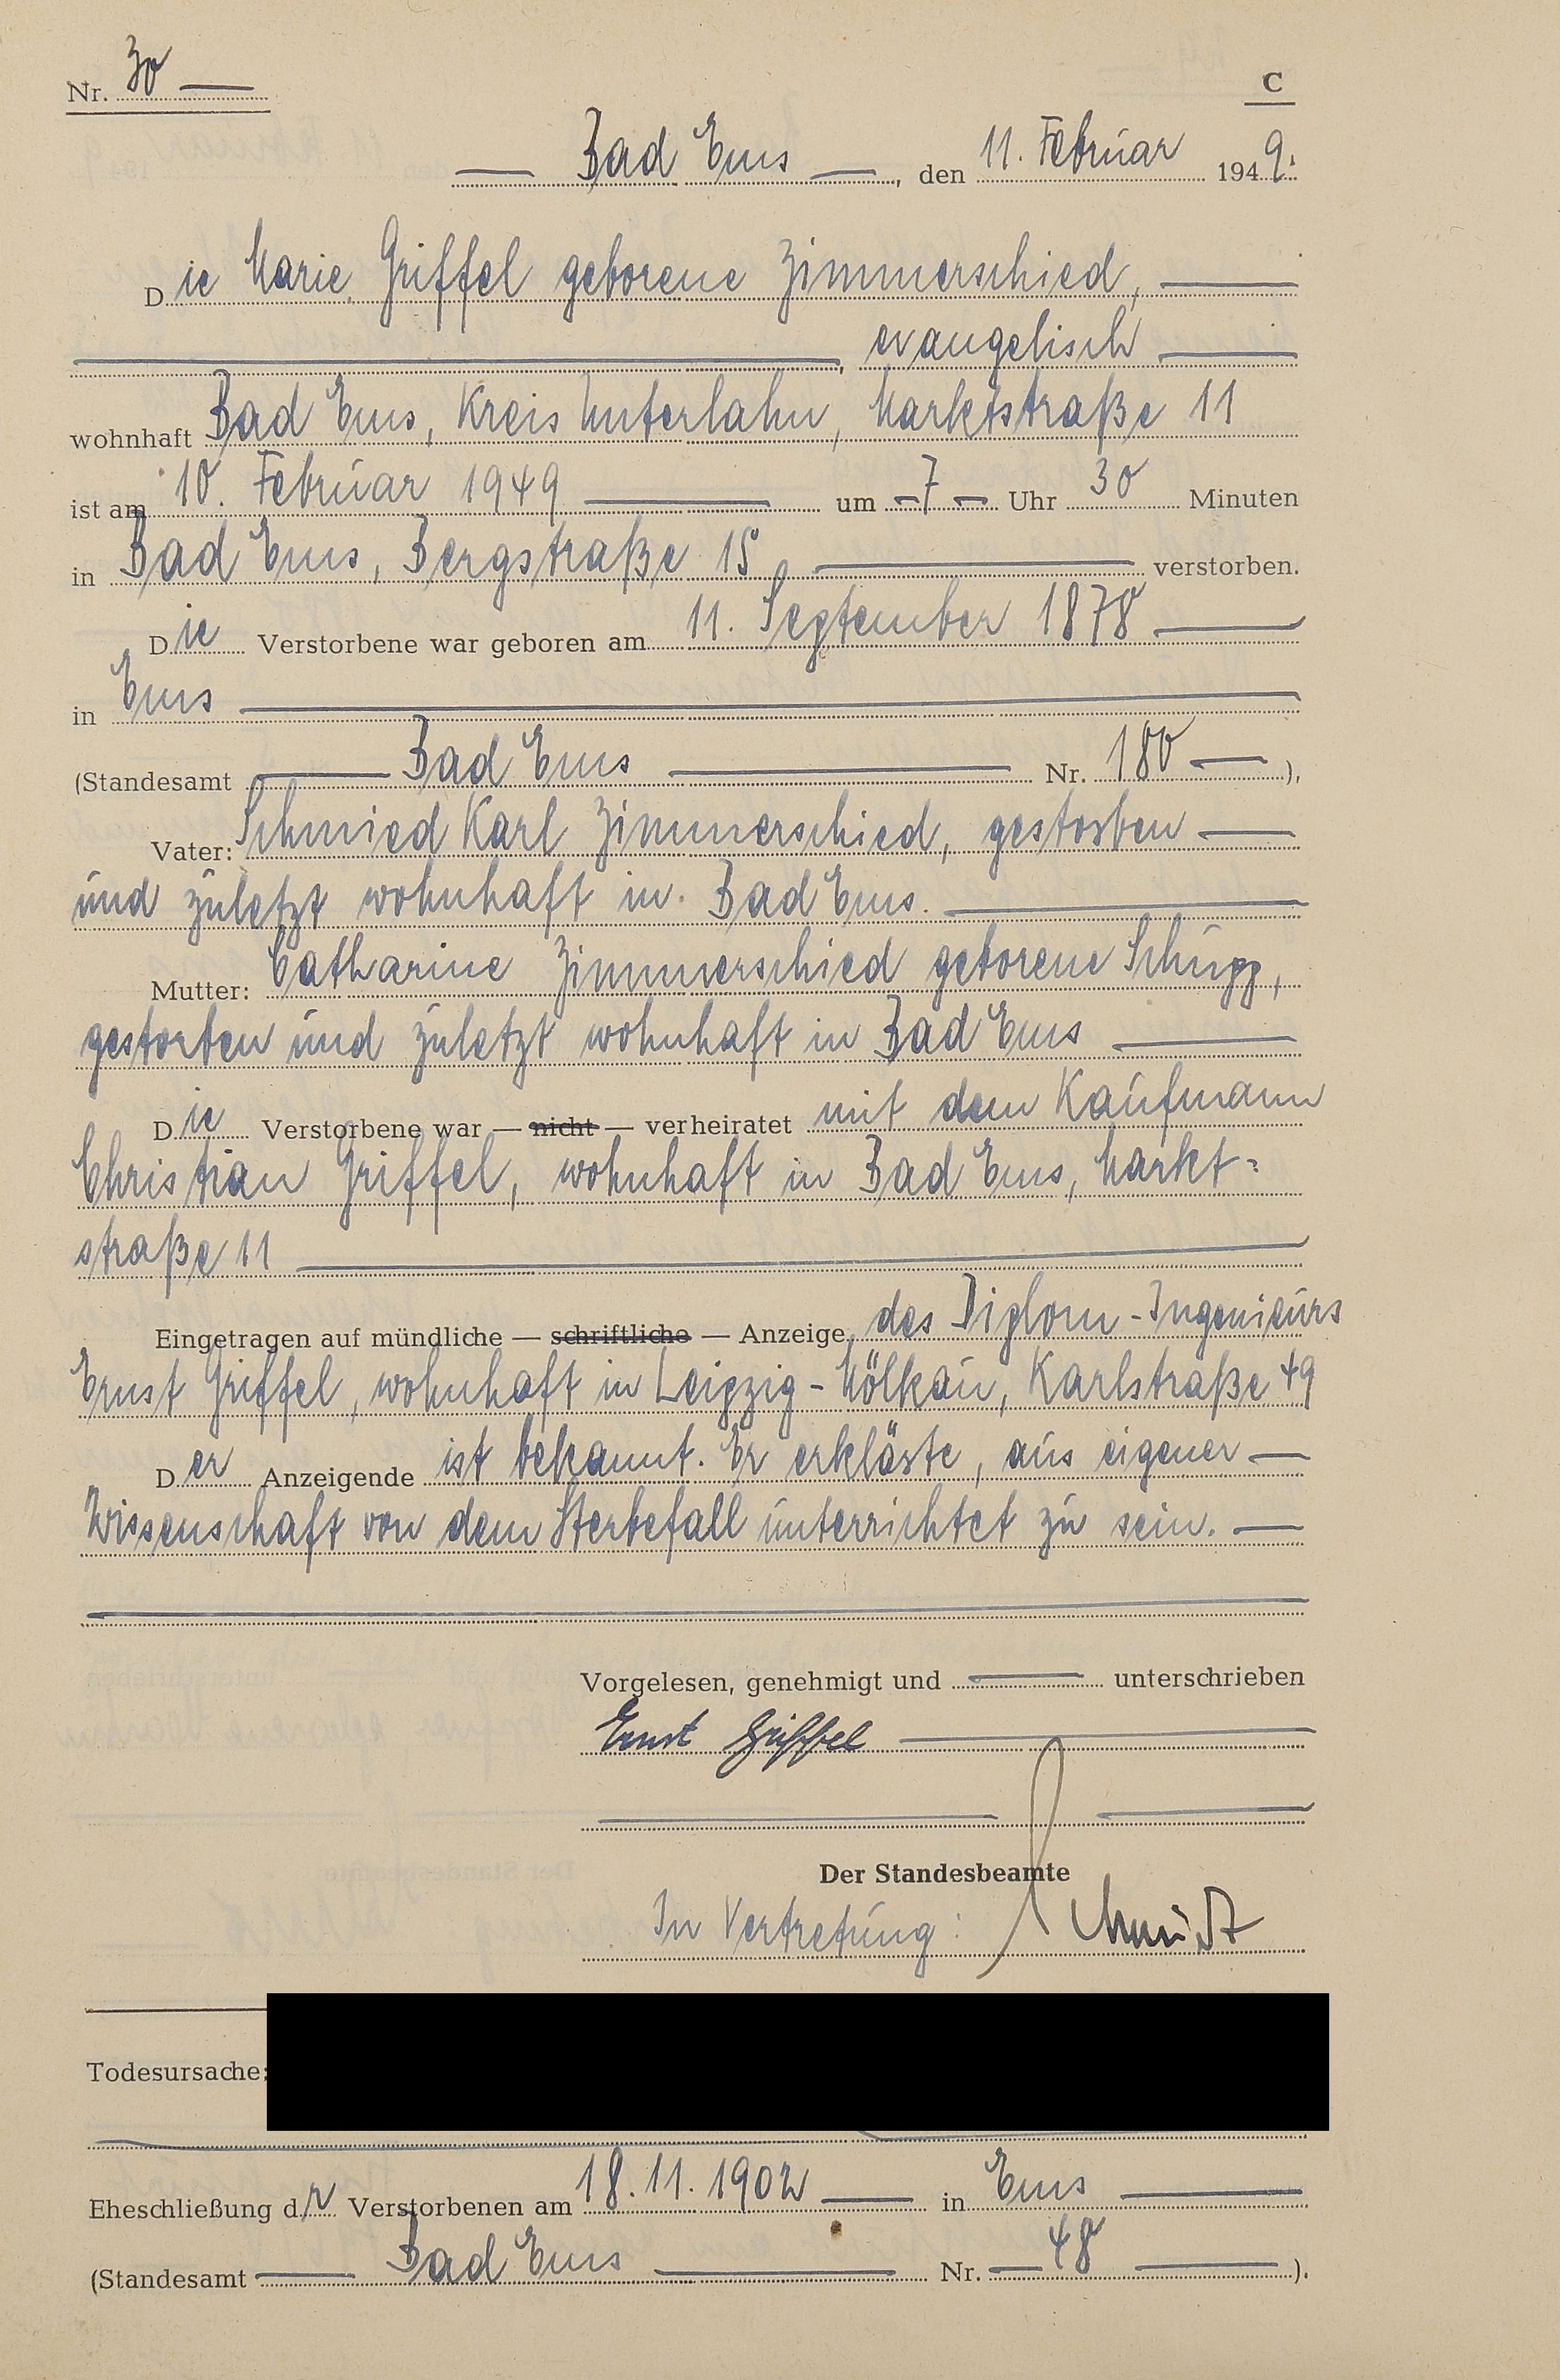 Nr. 30 —
C
— Bad Ems —, den 11. Februar 1949.
Die Marie Griffel geborene Zimmerschied, —
—, evangelisch —
wohnhaft Bad Ems, Kreis Unterlahn, Marktstraße 11
ist am 10. Februar 1949 — um — 7 — Uhr 30 Minuten
in Bad Ems, Bergstraße 15 — verstorben.
Die Verstorbene war geboren am 11. September 1878 —
in Ems —
(Standesamt — Bad Ems — Nr. 180 —),
Vater: Schmied Karl Zimmerschied, gestorben —
und zuletzt wohnhaft in Bad Ems. —
Mutter: Catharine Zimmerschied geborene Schupp,
gestorben und zuletzt wohnhaft in Bad Ems —
Die Verstorbene war — nicht — verheiratet mit dem Kaufmann
Christian Griffel, wohnhaft in Bad Ems, Markt=
straße 11 —
Eingetragen auf mündliche — schriftliche — Anzeige des Diplom-Ingenieurs
Ernst Griffel, wohnhaft in Leipzig-Mölkau, Karlstraße 49
Der Anzeigende ist bekannt. Er erklärte, aus eigener —
Wissenschaft von dem Sterbefall unterrichtet zu sein. —
Vorgelesen, genehmigt und — unterschrieben
Ernst Griffel —
Der Standesbeamte
In Vertretung: Schmidt
Todesursache:
Eheschließung der Verstorbenen am 18.11.1902 — in Ems —
(Standesamt — Bad Ems — Nr. — 48 —).